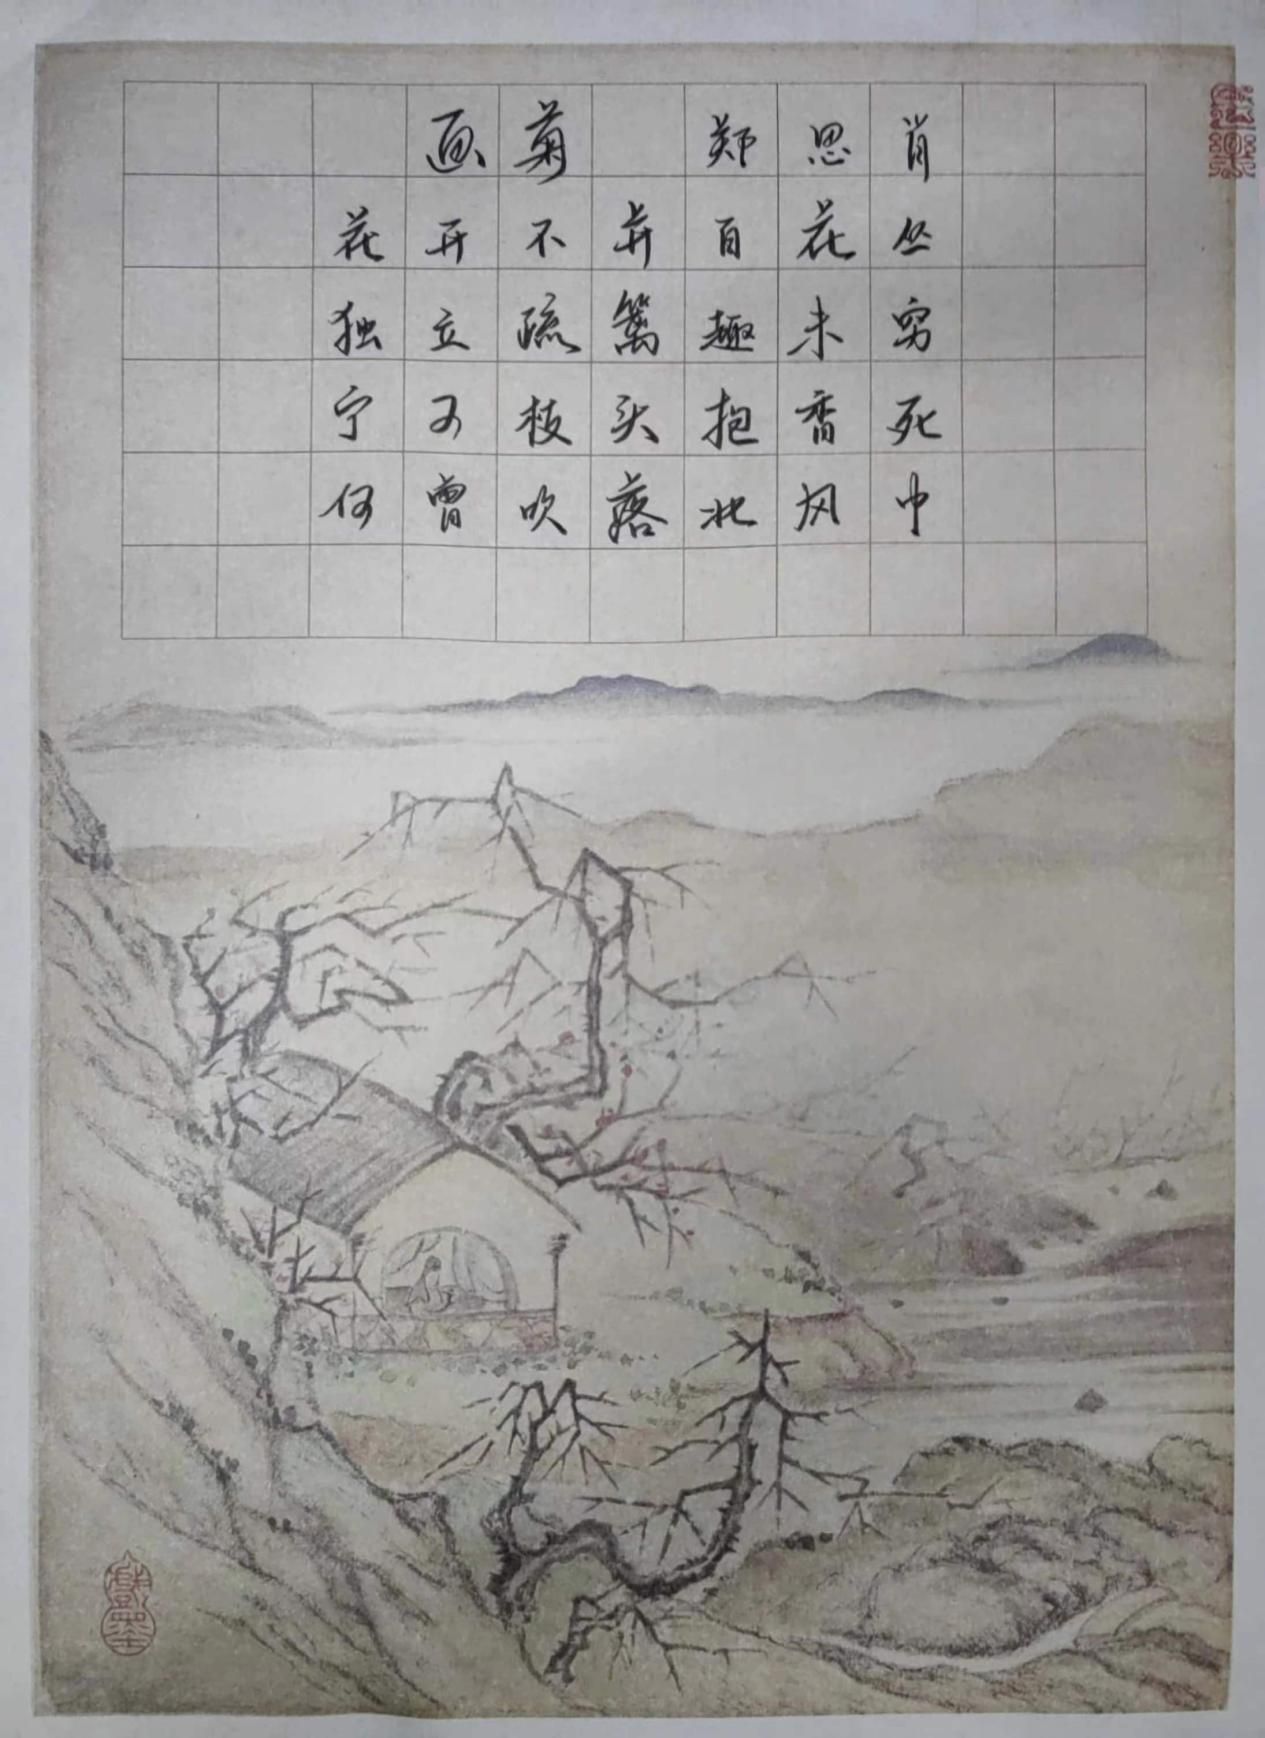 画菊 郑思肖
花开不并百花丛
独立疏篱趣未穷
宁可枝头抱香死
何曾吹落北风中
戏墨